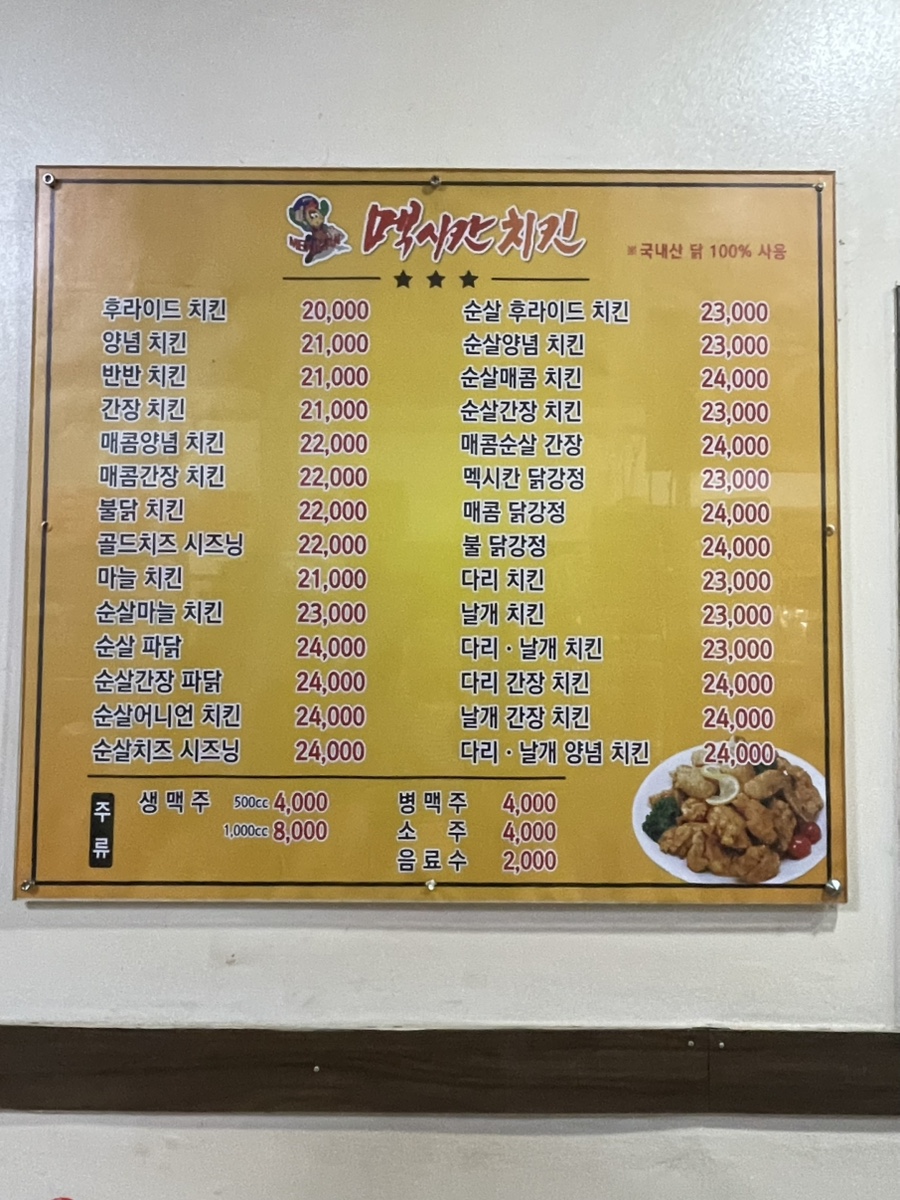 멕시칸 치킨
※국내산 닭 100% 사용
후라이드 치킨 20,000
양념 치킨 21,000
반반 치킨 21,000
간장 치킨 21,000
매콤양념 치킨 22,000
매콤간장 치킨 22,000
불닭 치킨 22,000
골드치즈 시즈닝 22,000
마늘 치킨 21,000
순살마늘 치킨 23,000
순살 파닭 24,000
순살간장 파닭 24,000
순살어니언 치킨 24,000
순살치즈 시즈닝 24,000
순살 후라이드 치킨 23,000
순살양념 치킨 23,000
순살매콤 치킨 24,000
순살간장 치킨 23,000
매콤순살 간장 24,000
멕시칸 닭강정 23,000
매콤 닭강정 24,000
불 닭강정 24,000
다리 치킨 23,000
날개 치킨 23,000
다리 · 날개 치킨 23,000
다리 간장 치킨 24,000
날개 간장 치킨 24,000
다리 · 날개 양념 치킨 24,000
주류
생맥주 500cc 4,000
1,000cc 8,000
병맥주 4,000
소주 4,000
음료수 2,000